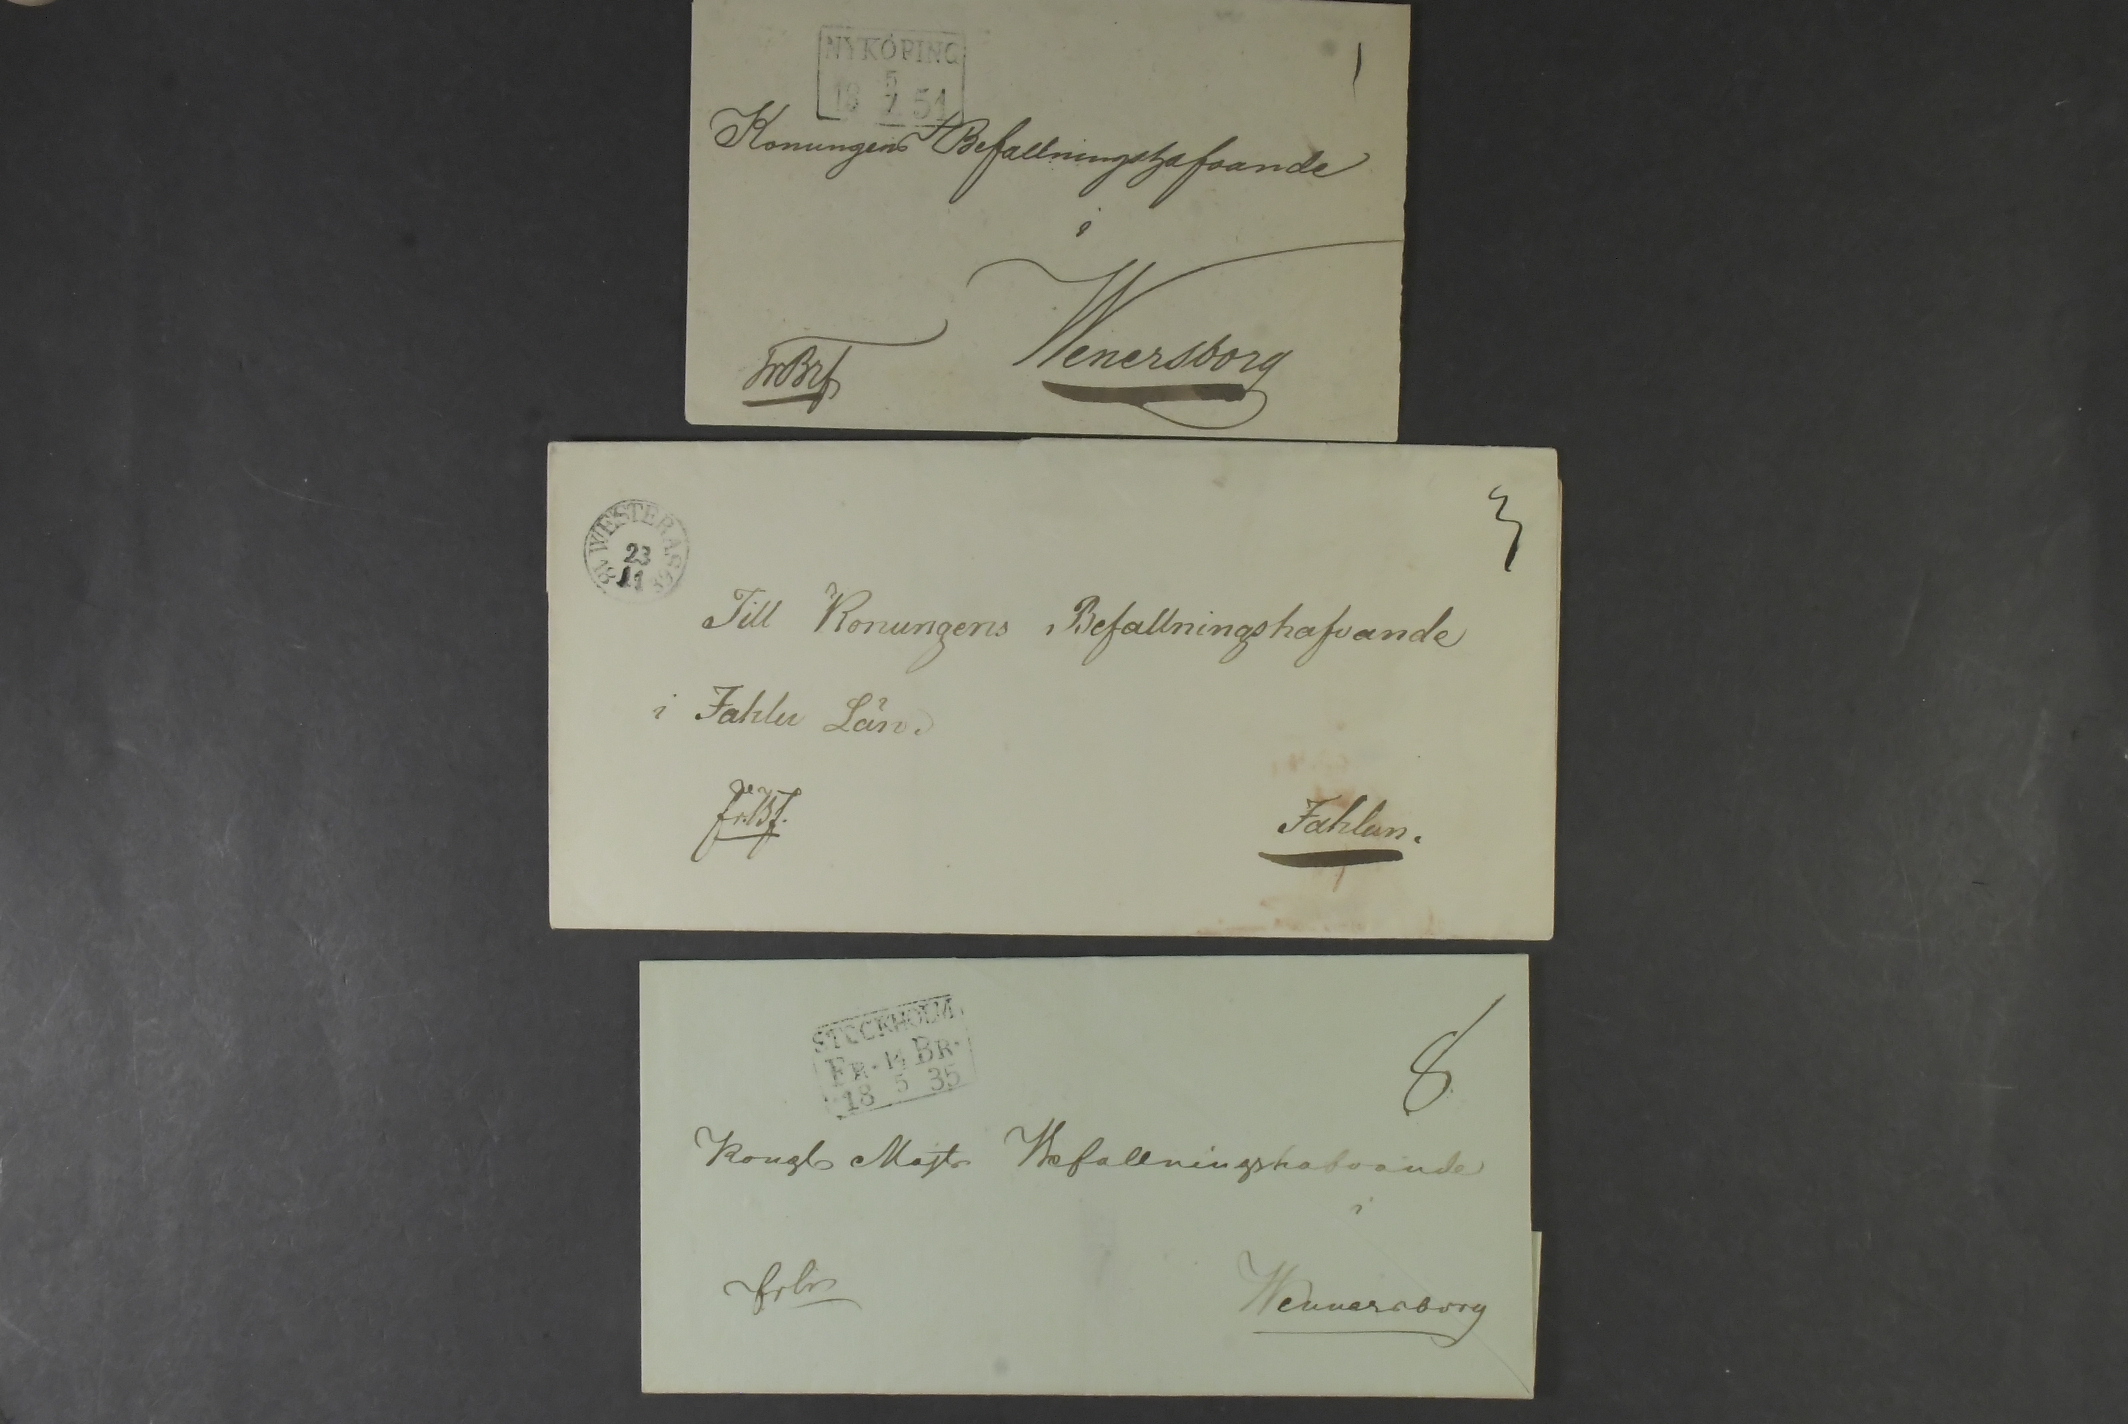 NYKÖPING
5
18 7 51
1
Konungens Befallningshafvande
i
Wenersborg
FrBrf
WESTERÅS
23
18 11
3
Till Konungens Befallningshafvande
i Fahlu Län.
fr.Bf.
Fahlun.
STOCKHOLM.
FR. 14 BR.
18 5 35
8
Kongl Majts Befallningshafvande
i
frbr
Wennersborg